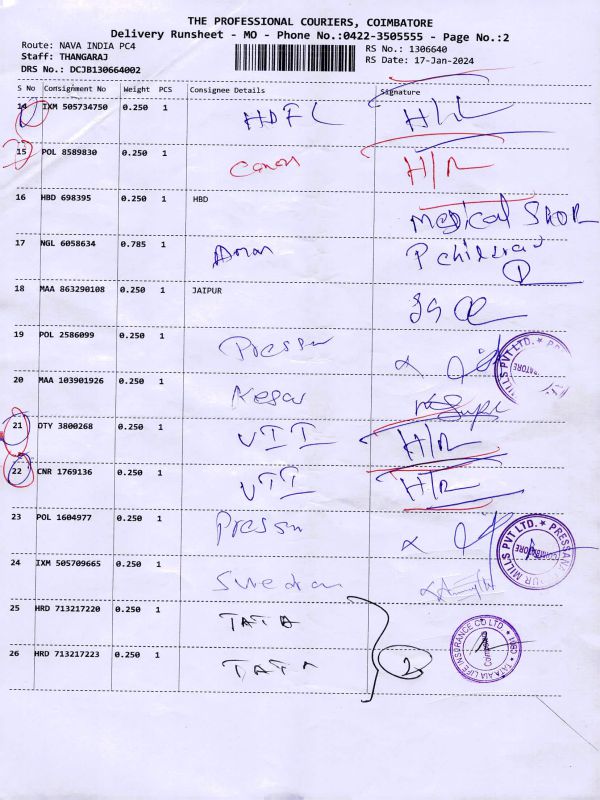 THE PROFESSIONAL COURIERS, COIMBATORE
Delivery Runsheet - MO - Phone No.:0422-3505555 - Page No.:2
Route: NAVA INDIA PC4
Staff: THANGARAJ
DRS No.: DCJB130664002
RS No.: 1306640
RS Date: 17-Jan-2024
S No Consignment No Weight PCS Consignee Details Signature
14 IXM 505734750 0.250 1 HDFC
15 POL 8589830 0.250 1 Canon H/R
16 HBD 698395 0.250 1 HBD Medical
17 NGL 6058634 0.785 1
18 MAA 863290108 0.250 1 JAIPUR
19 POL 2586099 0.250 1
20 MAA 103901926 0.250 1 Kesar
21 DTY 3800268 0.250 1 VTI H/R
22 CNR 1769136 0.250 1 VTI H/R
23 POL 1604977 0.250 1
24 IXM 505709665 0.250 1
25 HRD 713217220 0.250 1 TATA
26 HRD 713217223 0.250 1 TATA 2
MILLS PVT LTD.
MILLS PVT LTD. ★ PRESSANA
COIMBATORE
TATA AIA LIFE INSURANCE CO LTD